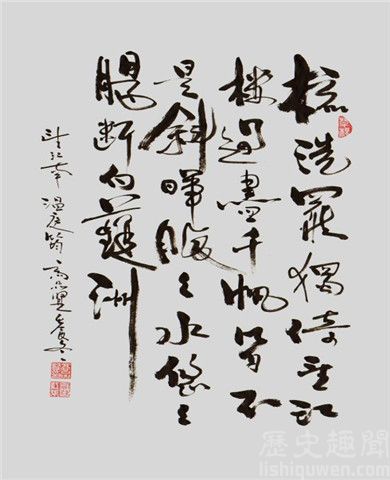 梳洗罷獨倚望江
樓過盡千帆皆不
是斜暉脉々水悠々
腸斷白蘋洲
望江南 温庭筠
歷史趣聞
lishiquwen.com